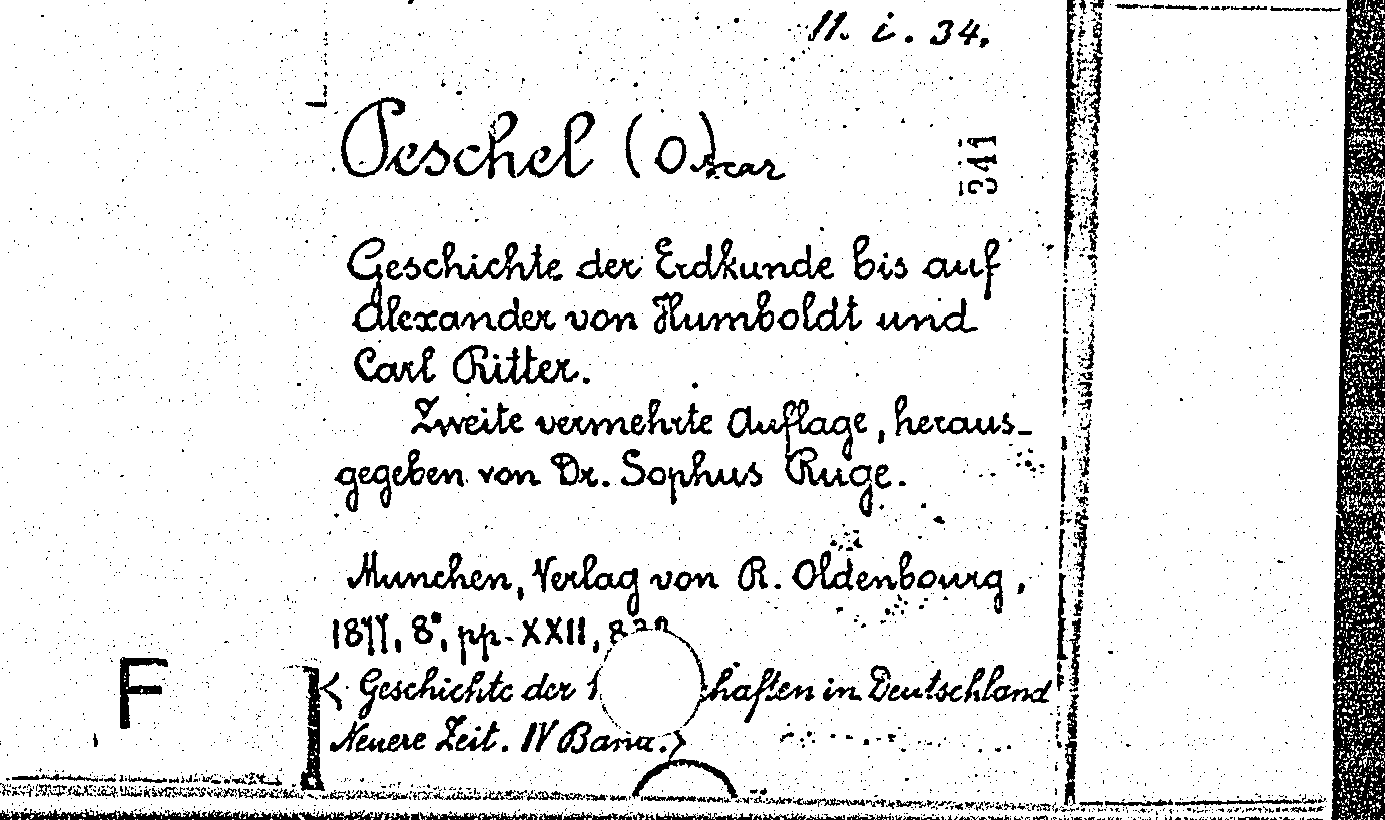 11. i. 34.
Peschel (O)scar
341
Geschichte der Erdkunde bis auf
Alexander von Humboldt und
Carl Ritter.
Zweite vermehrte Auflage, heraus-
gegeben von Dr. Sophus Ruge.
Munchen, Verlag von R. Oldenbourg,
1877, 8°, pp. XXII,
< Geschichte der haften in Deutschland
Neuere Zeit. IV Band. >
F